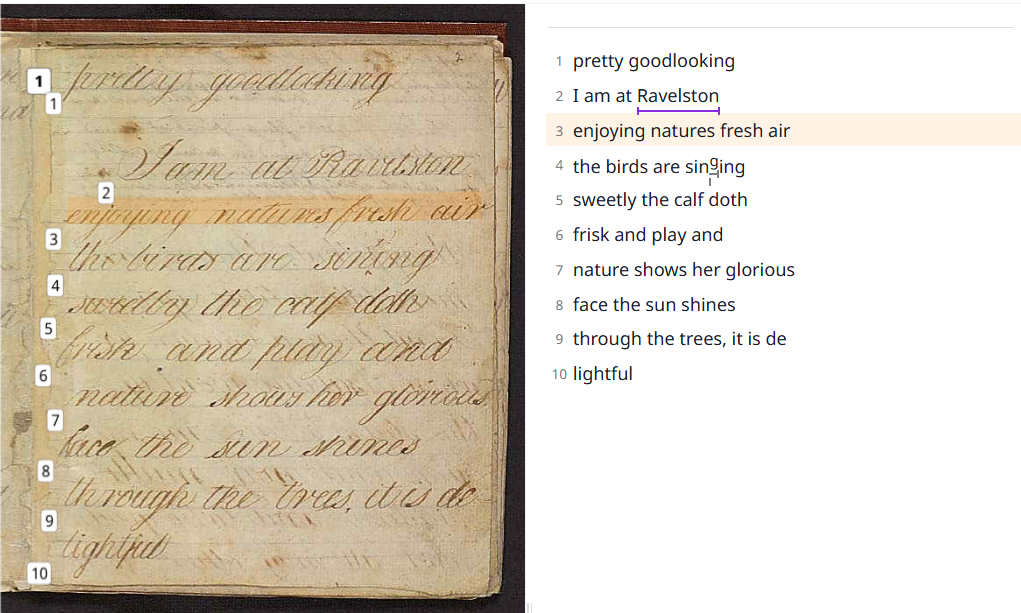 2
pretty goodlooking
I am at Ravelston
enjoying natures fresh air
the birds are sining
sweetly the calf doth
frisk and play and
nature shows her glorious
face the sun shines
through the trees, it is de
lightful
1
1
2
3
4
5
6
7
8
9
10
1 pretty goodlooking
2 I am at Ravelston
3 enjoying natures fresh air
4 the birds are singing
5 sweetly the calf doth
6 frisk and play and
7 nature shows her glorious
8 face the sun shines
9 through the trees, it is de
10 lightful